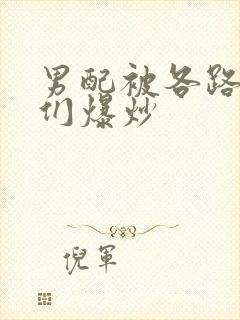 男配被各路
们爆炒
倪军